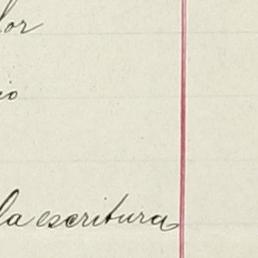 lor
io
la escritura